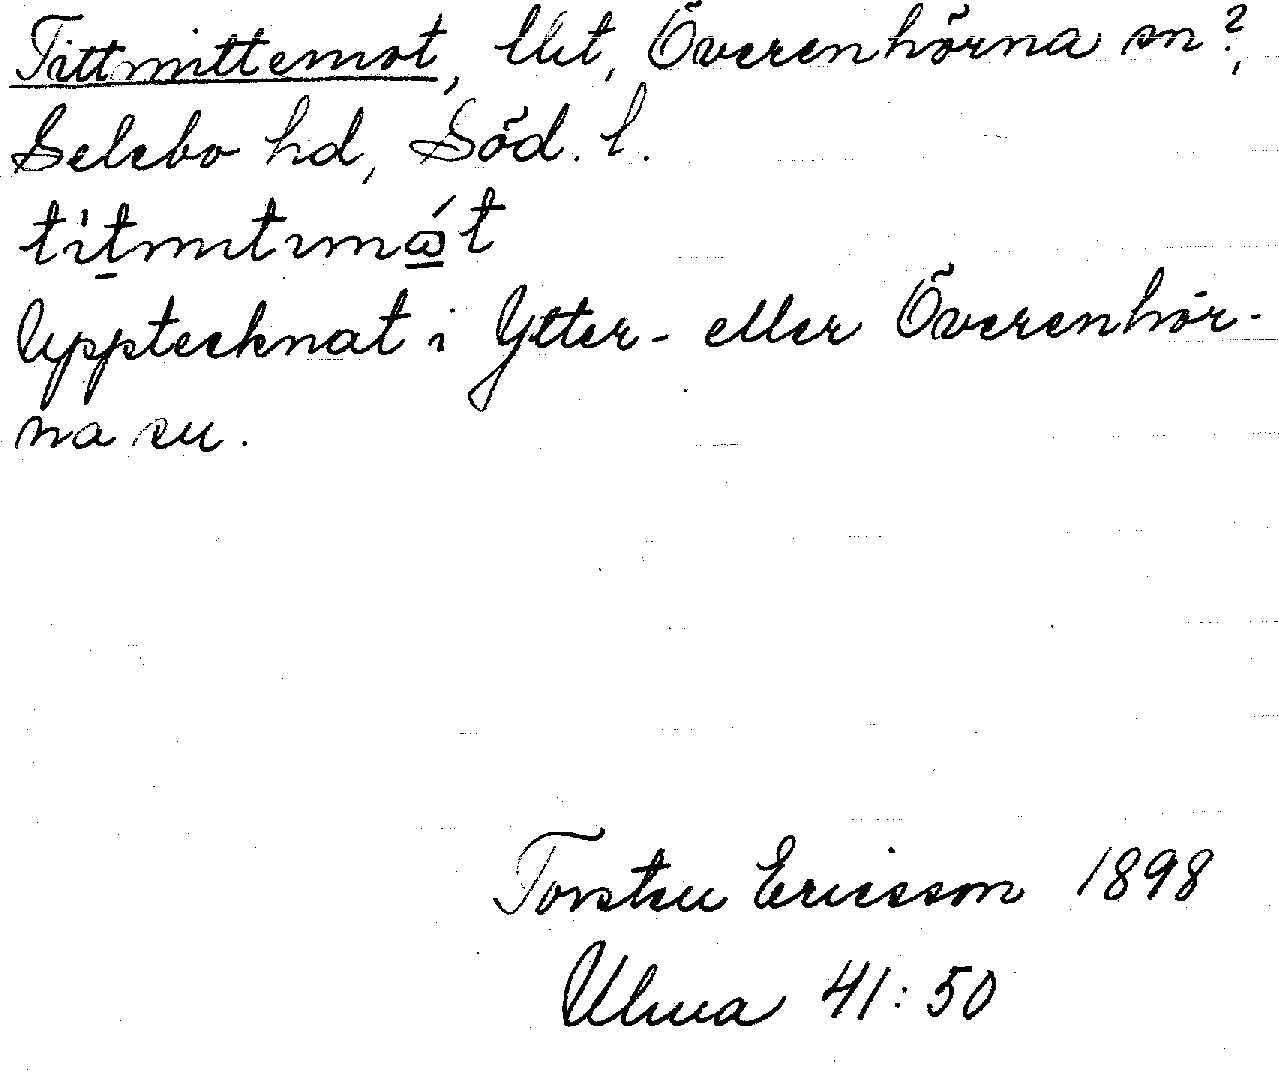 Tittmittemot, Utt, Överenhörna sn?,
Selebo hd, Söd. l.
titmitmơt
Upptecknat i Ytter- eller Överenhör-
na sn.
Torsten Ericsson 1898
Ulma 41:50